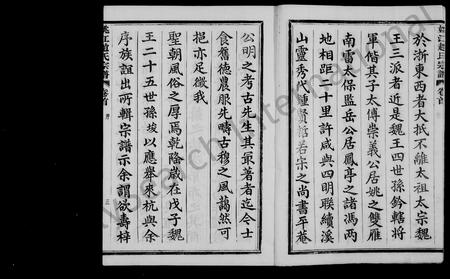 姚江趙氏宗譜 卷首
於浙東西者大扺不離太祖太宗魏
王三派者近是魏王四世孫鈐轄將
軍偕其子太傅崇義公居姚之雙雁
南雷而保監岳公居鳳亭之諸馮兩
地相距二十里許咸與四明聯續溪
山靈秀代鍾賢哲若宋之尚書平菴
公明之考古先生其最著者迄今士
食舊德農服先疇古穆之風藹然可
挹亦足徵我
聖朝風俗之厚焉乾隆歲在戊子魏
王二十五世孫埈以應舉來杭與余
序族誼出所輯宗譜示余謂欲壽梓
姚江趙氏宗譜 卷首